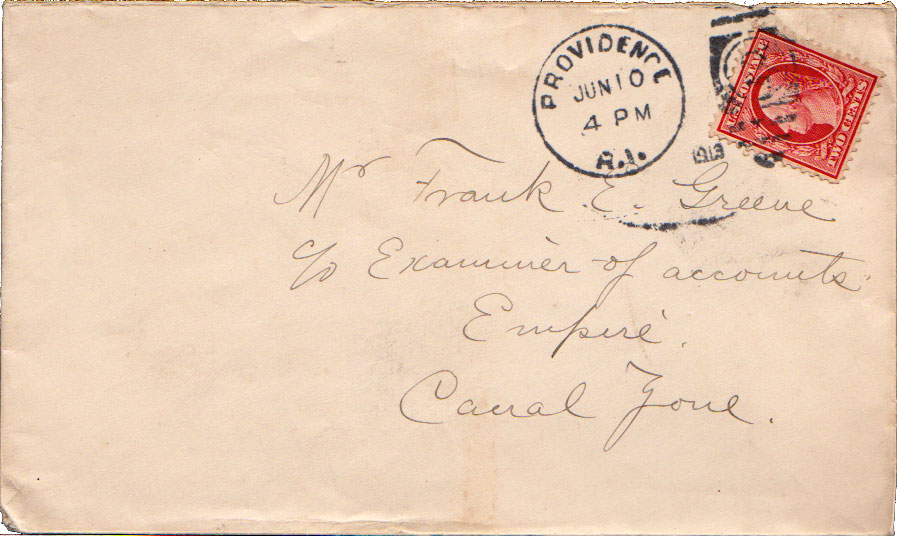 PROVIDENCE
JUN 10
4 PM
R.I.
1913
TWO CENTS
Mr Frank E. Greene
c/o Examiner of accounts.
Empire.
Canal Zone.